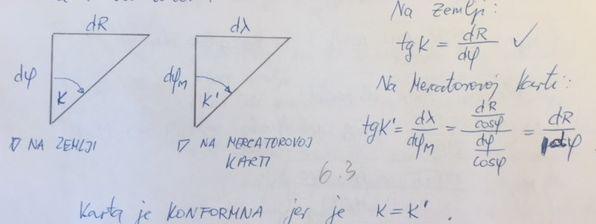 dR
dλ
dφ
K
dφM
K'
∇ NA ZEMLJI
∇ NA MERCATOROVOJ
KARTI
Na Zemlji:
tgK = dR/dφ ✓
Na Mercatorovoj karti:
tgK' = dλ/dφM = (dR/cosφ)/(dφ/cosφ) = dR/dφ
6.3
Karta je KONFORMNA jer je K = K'.